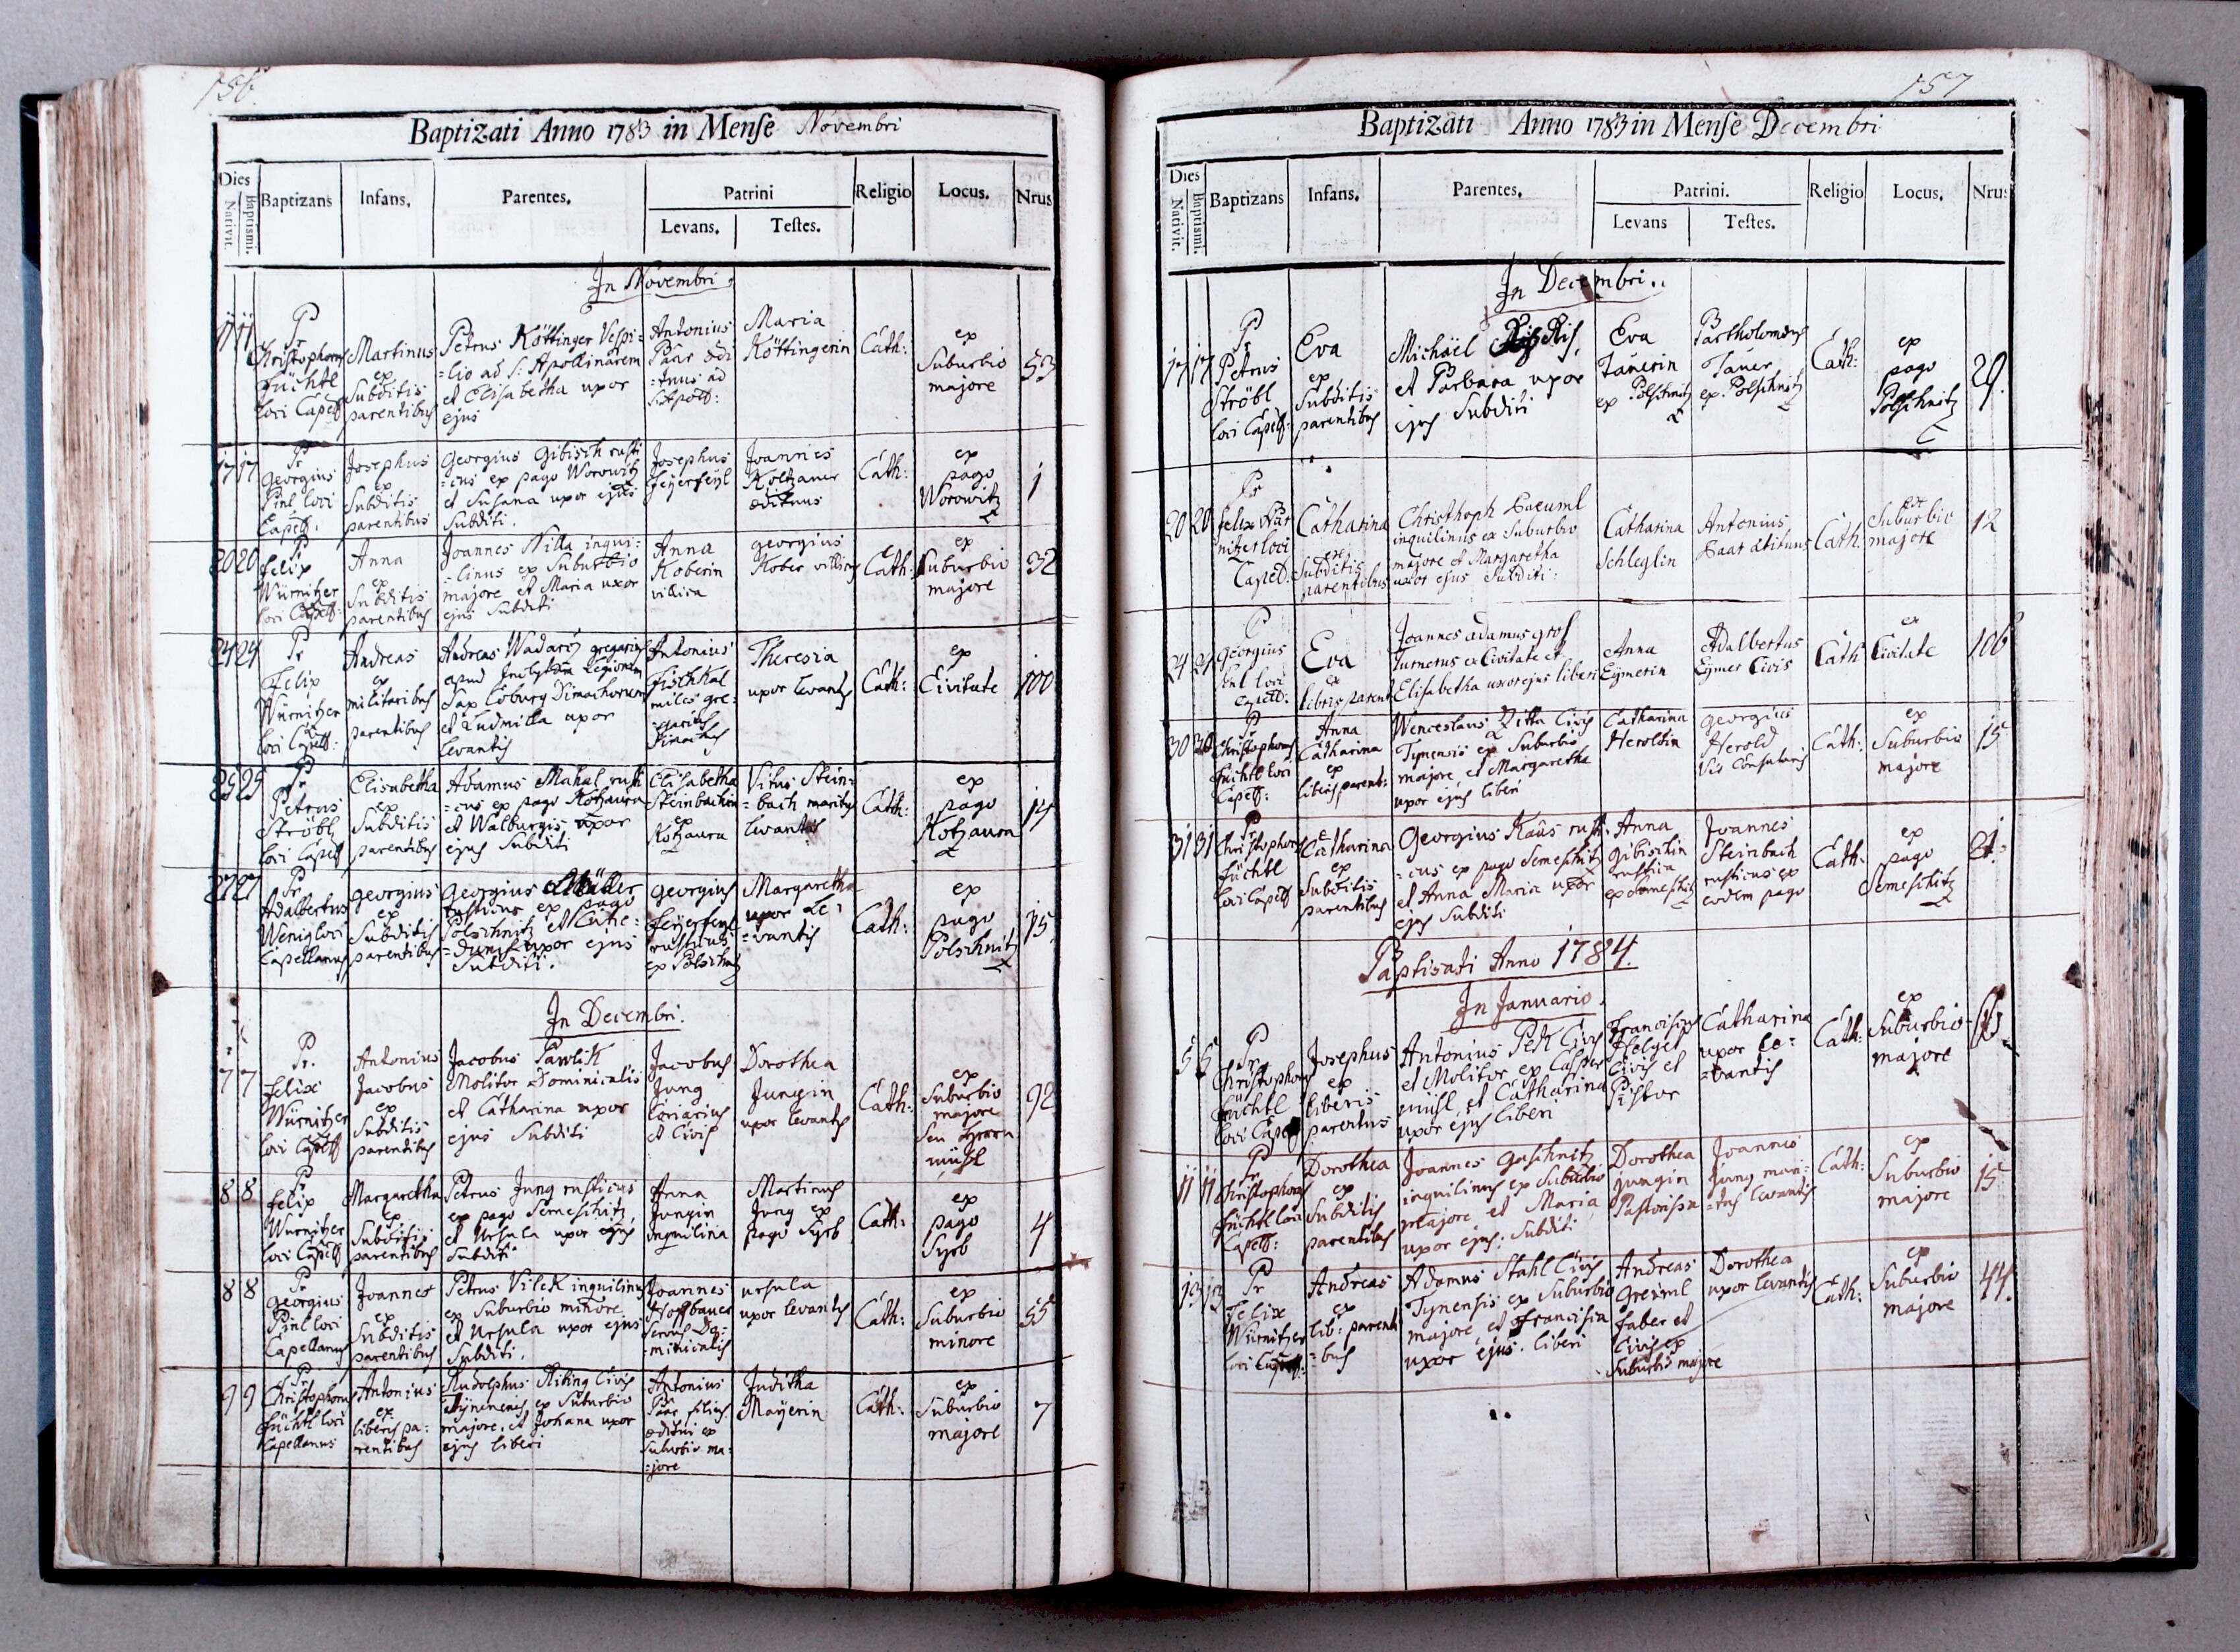 156.
Baptizati Anno 1783 in Mense Novembri
Dies
Nativit. Baptismi. Baptizans Infans. Parentes. Patrini Religio Locus. Nrus
Levans. Testes.
In Novembri.
11 11
Pr
Christophorus
Füchtl
loci Capell
Martinus
ex
Subditis
parentibus
Petrus Köttinger Vespi=
=lio ad S: Apollinarem
et Elisabetha uxor
ejus
Antonius
Paar ædi
=tuus ad
S: Apoll:
Maria
Köttingerin
Cath:
ex
Suburbio
majore
53
17 17
Pr
Georgius
Pinl loci
Capell:
Josephus
ex
Subditis
parentibus
Georgius Gibisch rusti
=cus ex pago Worowitz
et Susana uxor ejus
Subditi.
Josephus
Feyerfeyl
Joannes
Koltzauer
ædituus
Cath:
ex
pago
Worowitz
1
20 20
Pr
Felix
Würnitzer
loci Capell:
Anna
ex
Subditis
parentibus
Joannes Nilla inqui=
=linus ex Suburbio
majore et Maria uxor
ejus Subditi
Anna
Koberin
villica
Georgius
Kober villicus
Cath:
ex
Suburbio
majore
32
24 24
Pr
Felix
Würnitzer
loci Capell:
Andreas
ex
militaribus
parentibus
Andreas Wadarz gregarius
apud Inclytam Legionem
Sax Coburg Dimachorum
et Ludmilla uxor
levantis
Antonius
Fischkal
miles gre=
=garius
Dimachus
Theresia
uxor levantis
Cath:
ex
Civitate
100
25 25
Pr
Petrus
Ströbl
loci Capell
Elisabetha
ex
Subditis
parentibus
Adamus Mahal rusti
=cus ex pago Kotzaura
et Walburgis uxor
ejus Subditi
Elisabetha
Steinbachin
ex
Kotzaura
Vitus Stein=
=bach maritus
levantis
Cath:
ex
pago
Kotzaura
14
27 27
Pr
Adalbertus
Wenig loci
Capellanus
Georgius
ex
Subditis
parentibus
Georgius Müller
rusticus ex pago
Polschnitz et Cune=
=dunis uxor ejus
Subditi.
Georgius
Feyerfeyl
rusticus
ex Polschnitz
Margaretha
uxor le=
=vantis
Cath:
ex
pago
Polschnitz
15
In Decembri.
7 7
Pr.
Felix
Würnitzer
loci Capell
Antonius
Jacobus
ex
Subditis
parentibus
Jacobus Pawlik
Molitor Dominicalis
et Catharina uxor
ejus Subditi
Jacobus
Jung
Coriarius
et Civis
Dorothea
Jungin
uxor levantis
Cath:
ex
Suburbio
majore
seu
mühl
92
8 8
Pr
Felix
Würnitzer
loci Capell
Margaretha
ex
Subditis
parentibus
Petrus Jung rusticus
ex pago Semeschitz,
et Ursula uxor ejus
Subditi
Anna
Jungin
Inquilina
Martinus
Jung ex
pago Syrb
Cath:
ex
pago
Syrb
4
8 8
Pr
Georgius
Pinl loci
Capellanus
Joannes
ex
Subditis
parentibus
Petrus Vilek inquilinus
ex Suburbio minore,
et Ursula uxor ejus
Subditi.
Joannes
Hoffbauer
Servus Do=
=minicalis
Ursula
uxor levantis
Cath:
ex
Suburbio
minore
55
9 9
Pr
Christophorus
Füchtl loci
Capellanus
Antonius
ex
liberis pa=
rentibus
Rudolphus Kiking Civis
Tynenens, ex Suburbio
majore, et Johana uxor
ejus liberi
Antonius
Paar filius
æditui ex
Suburbio ma=
=jore
Juditha
Mayerin
Cath:
ex
Suburbio
majore
7
157
Baptizati Anno 1783 in Mense Decembri
Dies
Nativit. Baptismi. Baptizans Infans. Parentes. Patrini. Religio Locus. Nrus
Levans Testes.
In Decembri.
17 17
Pr
Petrus
Ströbl
loci Capell:
Eva
ex
Subditis
parentibus
Michaël Ris,
et Barbara uxor
ejus Subditi
Eva
Tauerin
ex Polschnitz
Bartholomæus
Tauer
ex Polschnitz
Cath:
ex
pago
Polschnitz
29.
20 20
Pr
Felix Wür
nitzer loci
Capell:
Catharina
ex
Subditis
parentibus
Christhoph Baeuml
inquilinus ex Suburbio
majore et Margaretha
uxor ejus Subditi:
Catharina
Schleglin
Antonius
Baar ædituus
Cath.
ex
Suburbio
majore
12
24 24
P
Georgius
Pinl loci
Capell:
Eva
ex
libris parent
Joannes Adamus Grof
Turnerus ex Civitate et
Elisabetha uxor ejus liberi
Anna
Eymerin
Adalbertus
Eymer Civis
Cath
ex
Civitate
106
30 30
Pr
Christophorus
Füchtl loci
Capell:
Anna
Catharina
ex
liberis parent:
Wenceslaus Zitta Civis
Tynensis ex Suburbio
majore, et Margaretha
uxor ejus liberi
Catharina
Heroldin
Georgius
Herold
Vir Consularis
Cath:
ex
Suburbio
majore
15
31 31
Pr
Christophorus
Füchtl
loci Capell
Catharina
ex
Subditis
parentibus
Georgius Kaus rusti
=cus ex pago Semeschitz
et Anna Maria uxor
ejus Subditi
Anna
Gibischin
rustica
ex Semeschitz
Joannes
Steinbach
rusticus ex
eodem pago
Cath.
ex
pago
Semeschitz
21.
Baptisati Anno 1784.
In Januario.
5 5
Pr
Christophorus
Füchtl
loci Capell
Josephus
ex
liberis
parentibus
Antonius Pek Civis
et Molitor ex Casper
mühl, et Catharina
uxor ejus liberi
Franciscus
Helget
Civis et
Pistor
Catharina
uxor le=
=vantis
Cath:
ex
Suburbio
majore
11 11
Pr
Christophorus
Füchtl loci
Capell:
Dorothea
ex
Subditis
parentibus
Joannes Guschnitz
inquilinus ex Suburbio
majore et Maria
uxor ejus: Subditi
Dorothea
Jungin
Pastorissa
Joannes
Jung mari=
=tus levantis
Cath:
ex
Suburbio
majore
15
13 13
Pr
Felix
Würnitzer
loci Capell:
Andreas
ex
lib: parenti
=bus
Adamus Stahl Civis
Tynensis ex Suburbio
majore, et Francisca
uxor ejus. liberi
Andreas
Greiml
faber et
Civis ex
Suburbio majore
Dorothea
uxor levantis
Cath:
ex
Suburbio
majore
44.